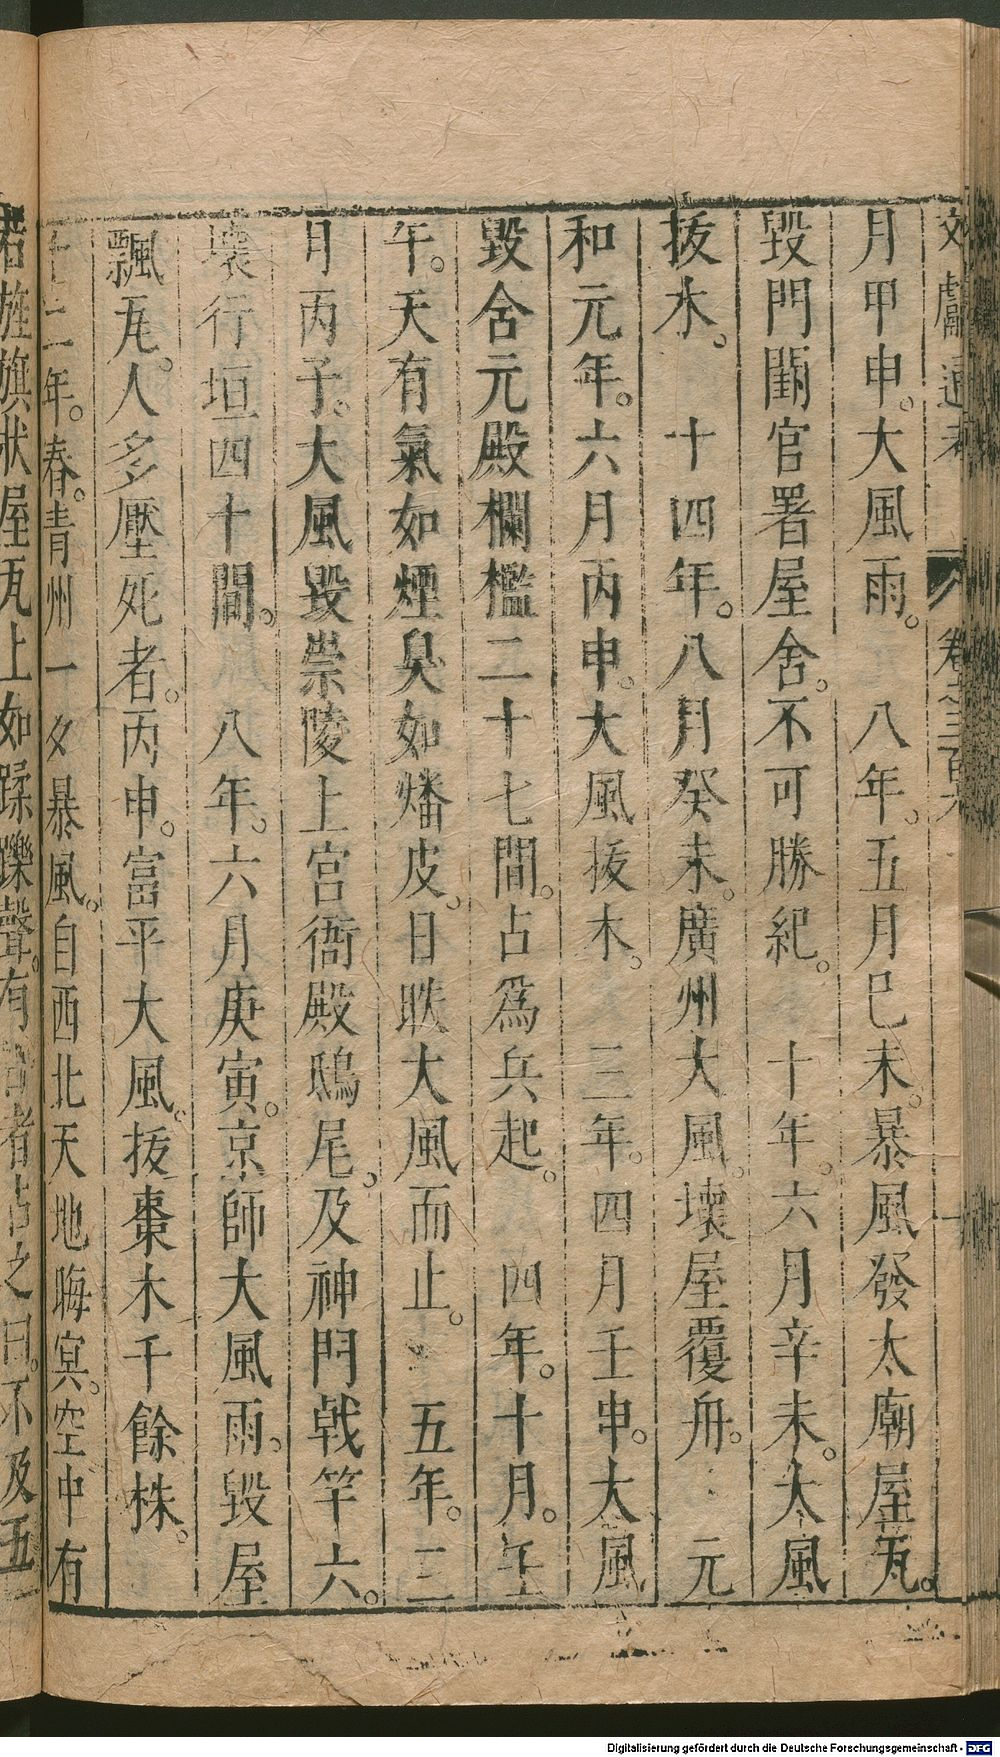 文獻通考 卷之三百六
月甲申。大風雨。 八年。五月巳未。暴風發太廟屋瓦。
毀門闈官署屋舍。不可勝紀。 十年。六月辛未。大風
拔水。 十四年。八月癸未。廣州大風。壞屋覆舟。 元
和元年。六月丙申。大風拔木。 三年。四月壬申。大風
毀含元殿欄檻二十七間。占爲兵起。 四年。十月。壬
午。天有氣如煙臭如燔皮。日昳大風而止。 五年。三
月丙子。大風毀崇陵上宮衙殿鴟尾。及神門戟竿六。
壞行垣四十間。 八年。六月庚寅。京師大風雨。毀屋
飄瓦。人多壓死者。丙申。富平大風。拔棗木千餘株。
十二年。春。青州一夕暴風。自西北天地晦冥。空中有
若旌旗狀屋瓦上如蹂躒聲。有者占之曰。不及五
Digitalisierung gefördert durch die Deutsche Forschungsgemeinschaft - DFG